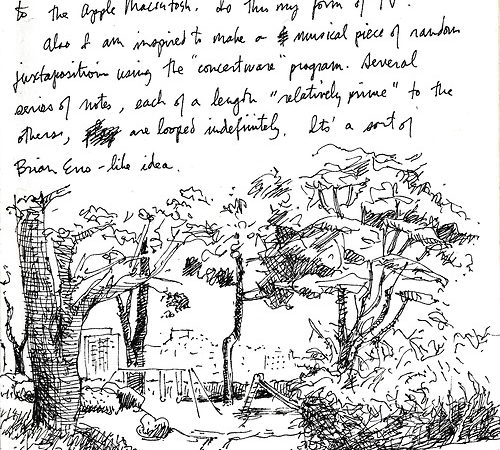 to the Apple Macintosh. Is this my form of TV?
Also I am inspired to make a musical piece of random
juxtaposition using the "concertware" program. Several
series of notes, each of a length "relatively prime" to the
others, are looped indefinitely. Its' a sort of
Brian Eno-like idea.